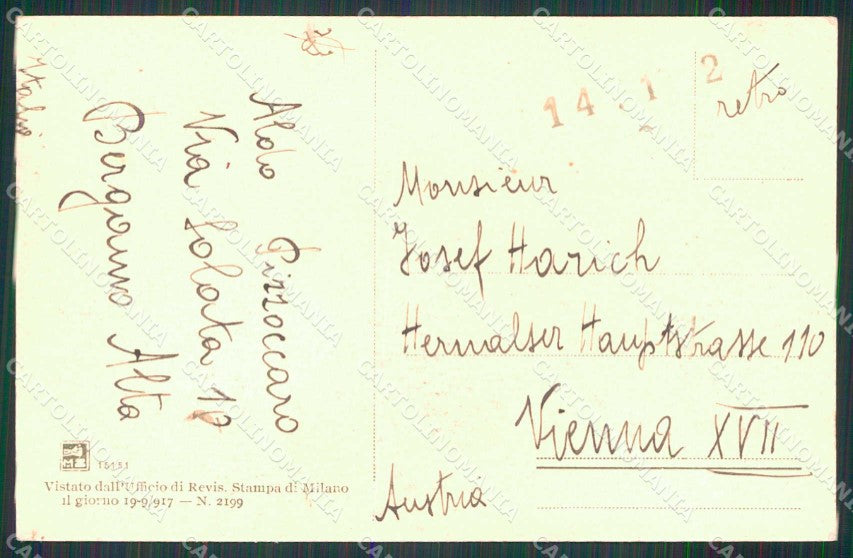 Italia
Aldo Pizzoccaro
Via Solata 10
Bergamo Alta
15151
Vistato dall'Ufficio di Revis. Stampa di Milano
il giorno 19-9/917 — N. 2199
14 1 2
retro
Monsieur
Josef Harich
Hernalser Hauptstrasse 110
Vienna XVII
Austria
CARTOLINOMANIA